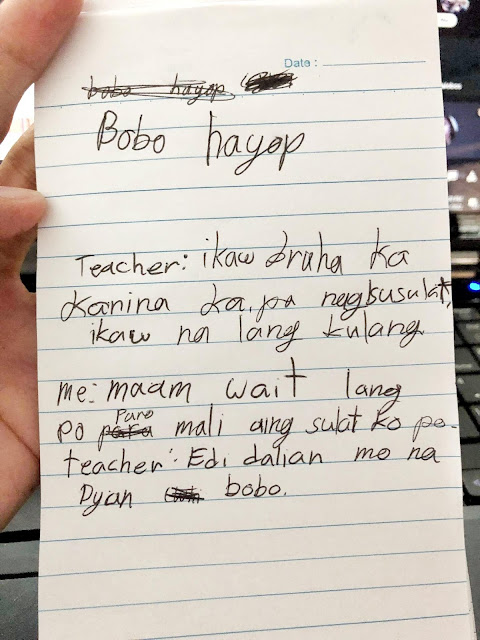 Date :
bobo hayop
Bobo hayop
Teacher: ikaw bruha ka
kanina ka pa nagbusulat,
ikaw na lang kulang
me: maam wait lang
po Puro mali aing sulat ko po.
teacher: Edi dalian mo na
Dyan bobo.